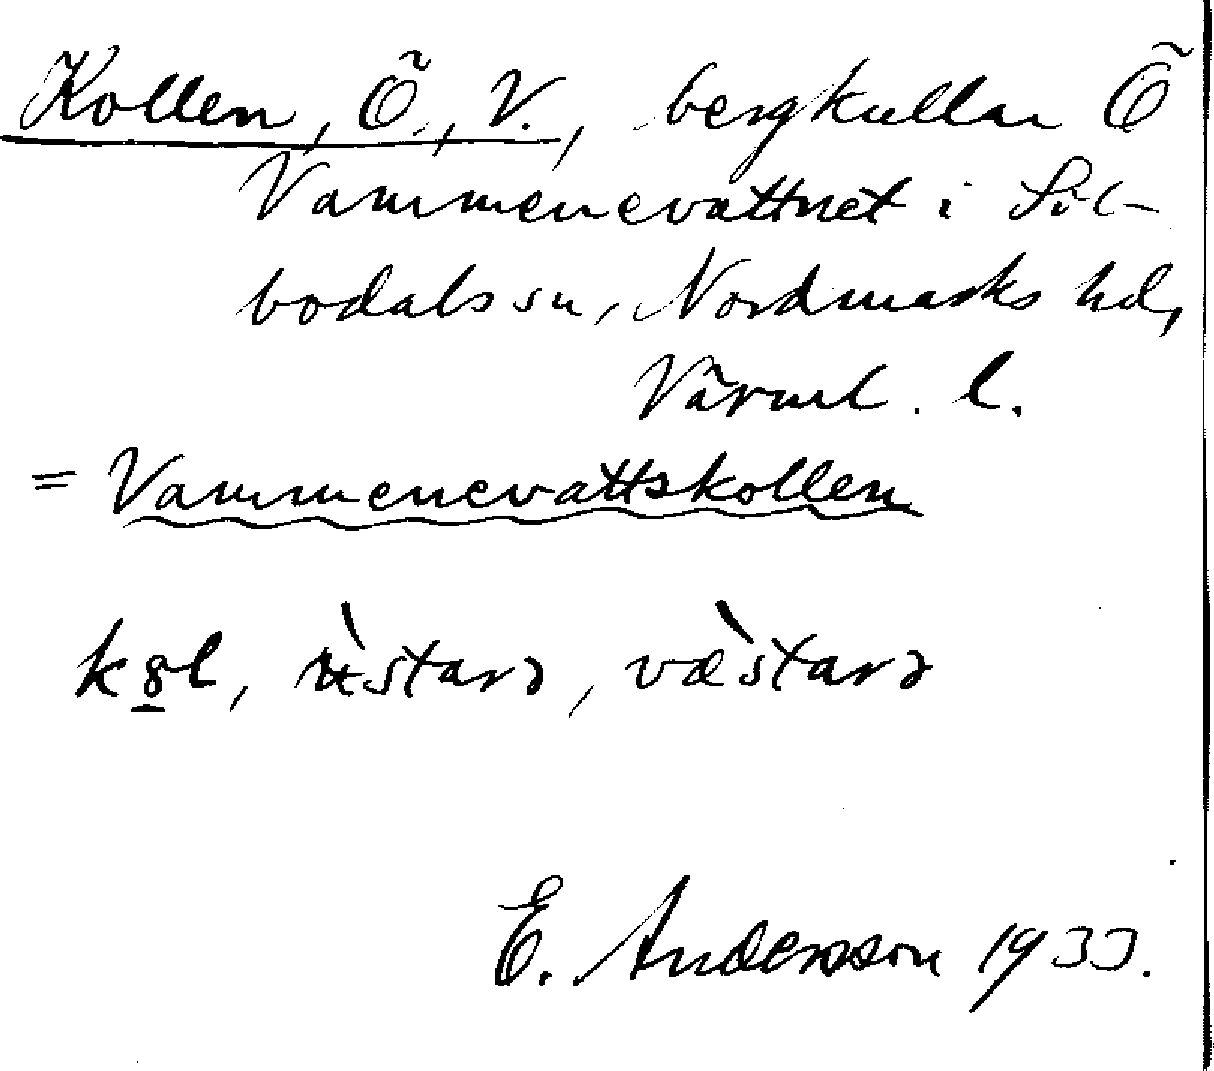 Kollen, Ö., V., bergkullar Ö
Vammenevattnet i Sil-
bodals sn, Nordmarks hd,
Värml. l.
= Vammenevattskollen
væ̀starə
E. Andersson 1933.